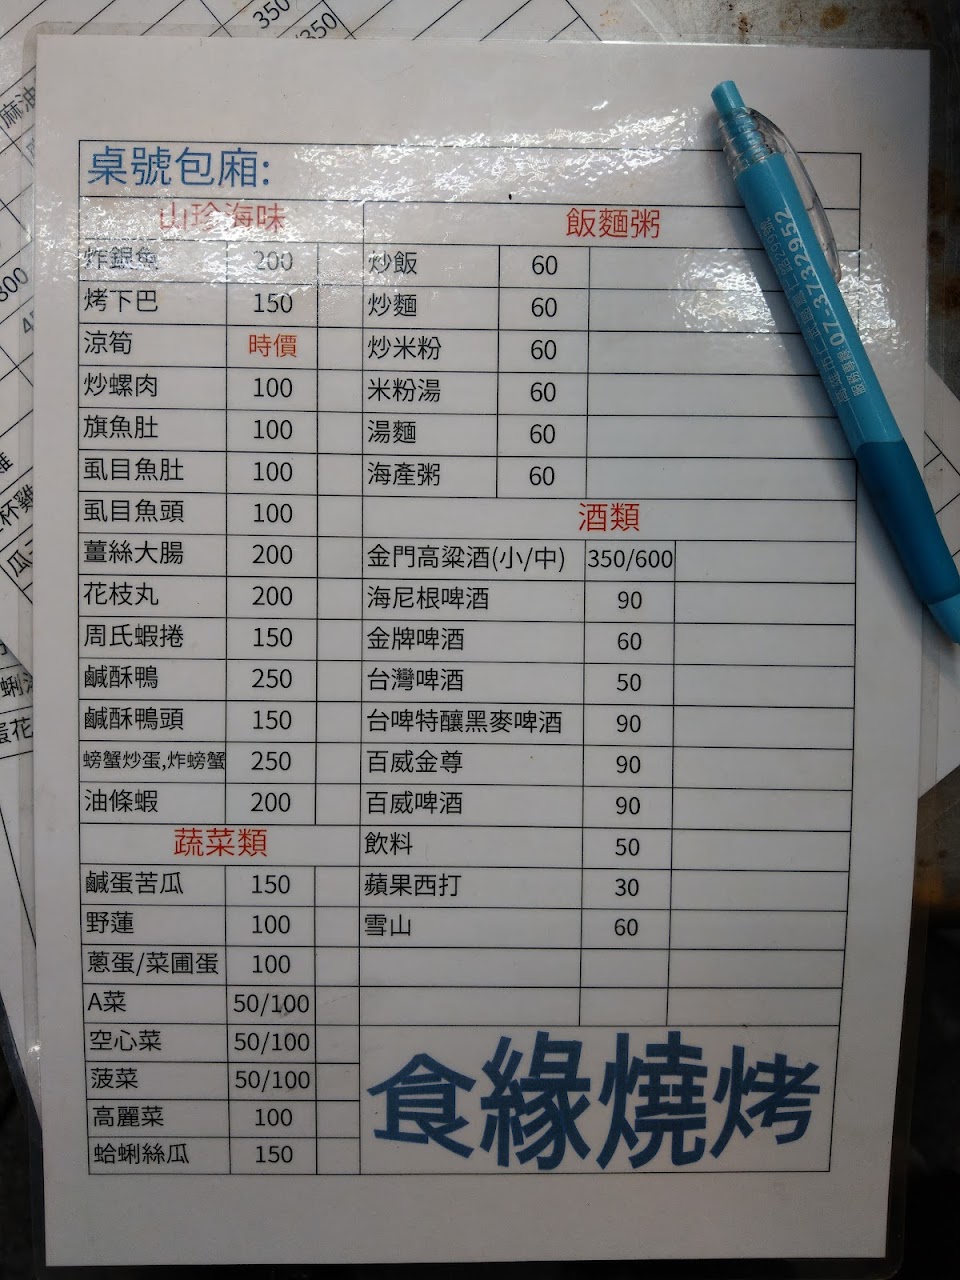 桌號包廂:
山珍海味
炸銀魚 200
烤下巴 150
涼筍 時價
炒螺肉 100
旗魚肚 100
虱目魚肚 100
虱目魚頭 100
薑絲大腸 200
花枝丸 200
周氏蝦捲 150
鹹酥鴨 250
鹹酥鴨頭 150
螃蟹炒蛋,炸螃蟹 250
油條蝦 200
蔬菜類
鹹蛋苦瓜 150
野蓮 100
蔥蛋/菜圃蛋 100
A菜 50/100
空心菜 50/100
菠菜 50/100
高麗菜 100
蛤蜊絲瓜 150
飯麵粥
炒飯 60
炒麵 60
炒米粉 60
米粉湯 60
湯麵 60
海產粥 60
酒類
金門高粱酒(小/中) 350/600
海尼根啤酒 90
金牌啤酒 60
台灣啤酒 50
台啤特釀黑麥啤酒 90
百威金尊 90
百威啤酒 90
飲料 50
蘋果西打 30
雪山 60
食緣燒烤
07-3732952
350
350
麻油
800